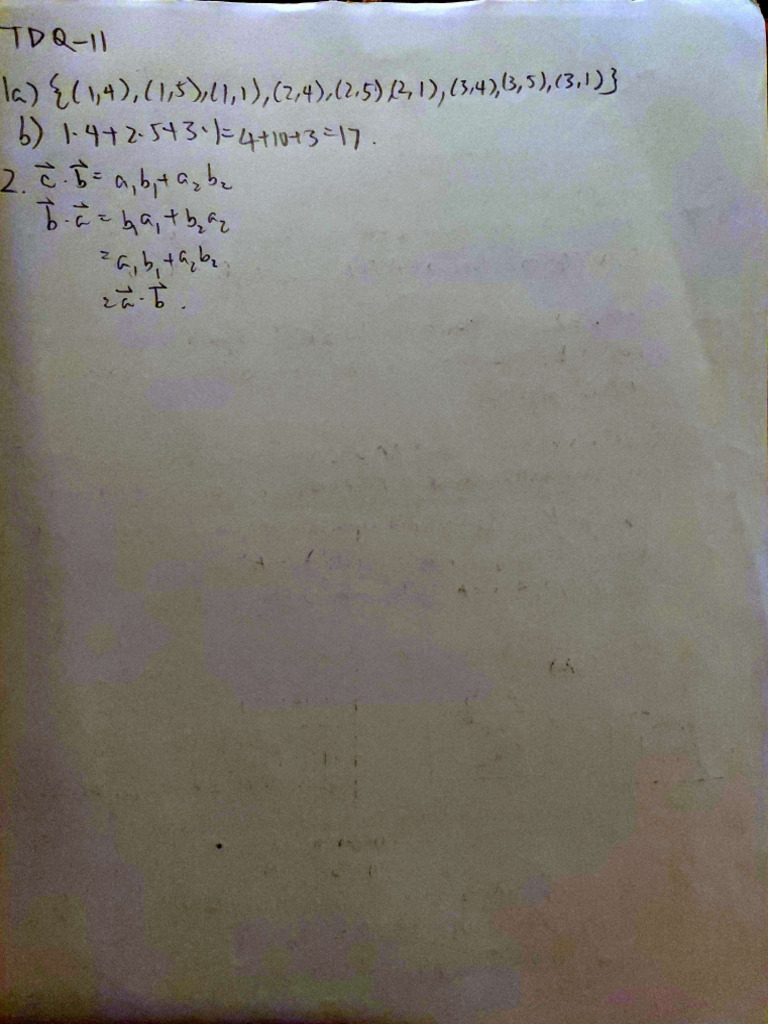 TDQ-11
1a) {(1,4),(1,5),(1,1),(2,4),(2,5)(2,1),(3,4),(3,5),(3,1)}
b) 1·4+2·5+3·1=4+10+3=17.
2. c⃗·b⃗= a₁b₁+a₂b₂
b⃗·a⃗ = b₁a₁+b₂a₂
=a₁b₁+a₂b₂
=a⃗·b⃗.